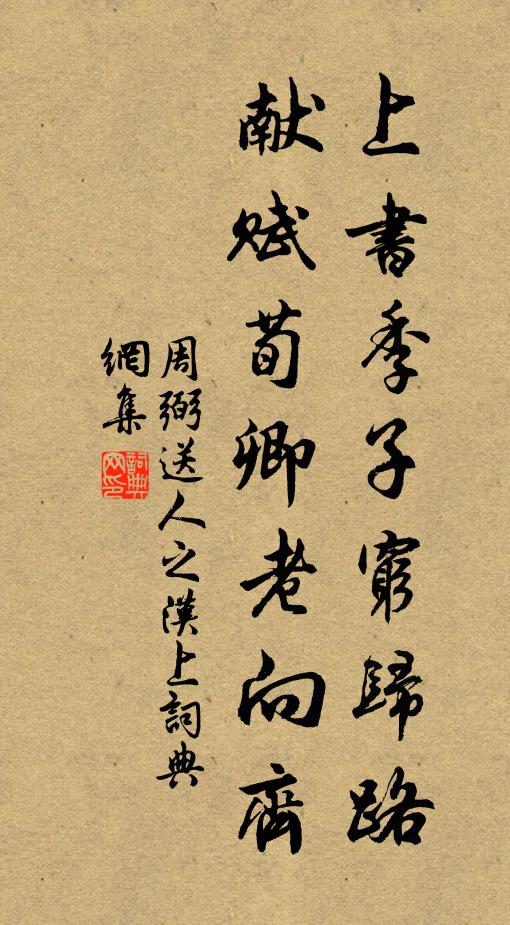 上書季子窮歸路
献賦荀卿老向齊
周弼送人之漢上詞典
網集
詞典網印